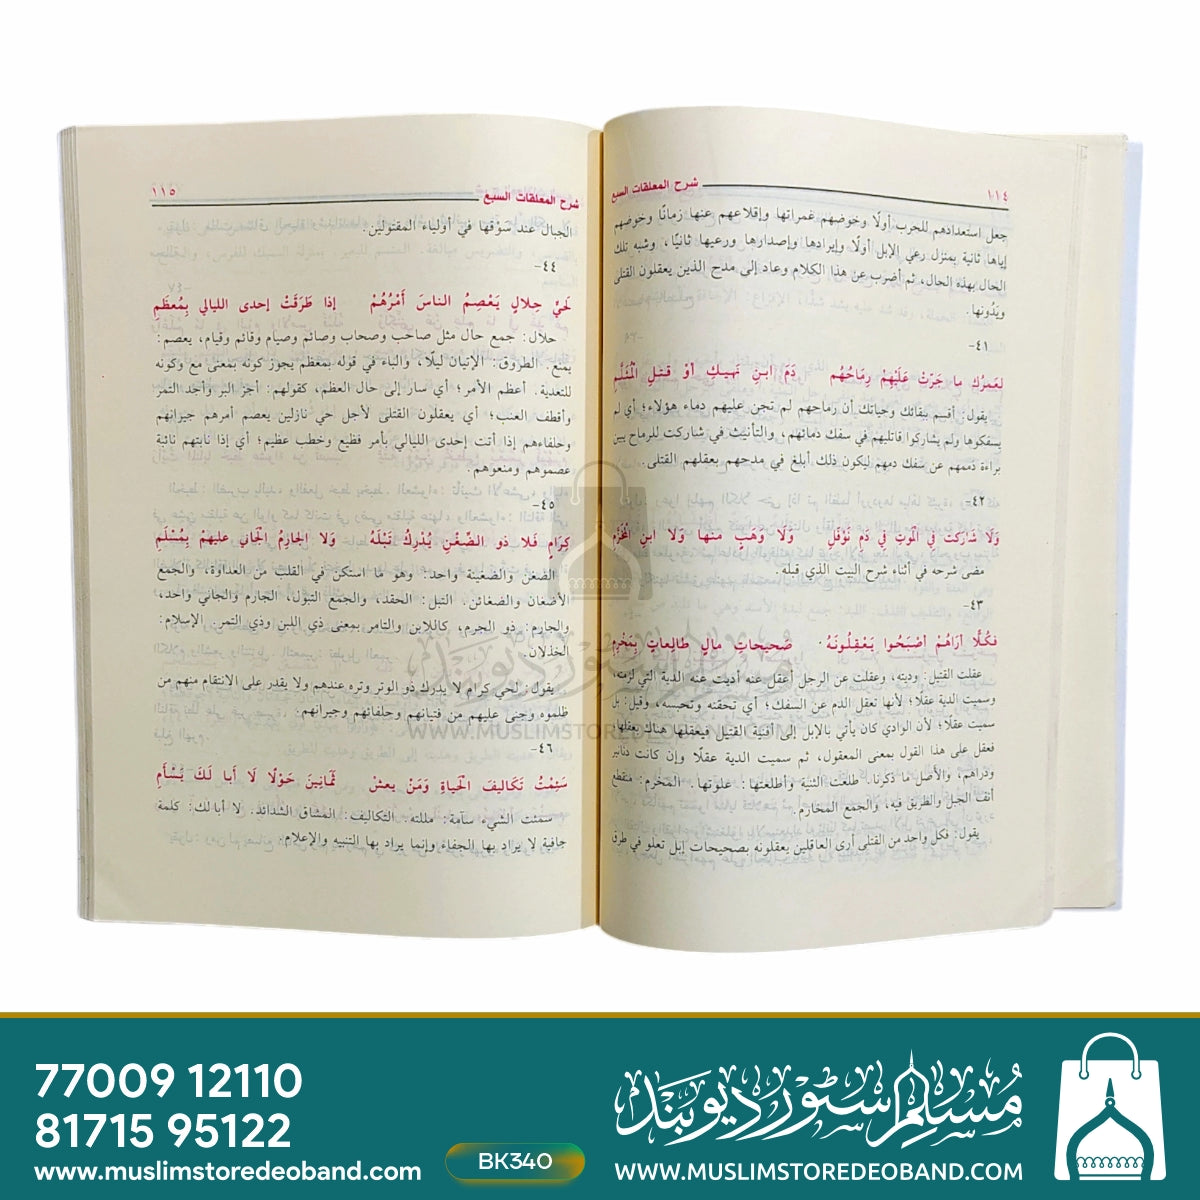 ١١٤
شرح المعلقات السبع
جعل استعدادهم للحرب أولًا وخوضهم غمراتها وإقلاعهم عنها زمانًا وخوضهم
إياها ثانية بمنزلة رعي الإبل أولًا وإيرادها وإصدارها ورعيها ثانيًا، وشبه تلك
الحال بهذه الحال، ثم أضرب عن هذا الكلام وعاد إلى مدح الذين يعقلون القتلى
ويَدُونها.
٤١-
لعَمرُك ما جَرّتْ عَلَيْهمْ رِماحُهُم دَمَ ابنِ نَهيكٍ أوْ قتيلِ الْمُثَلَّمِ
يقول: أقسم ببقائك وحياتك أن رماحهم لم تجن عليهم دماء هؤلاء؛ أي لم
يسفكوها ولم يشاركوا قاتليهم في سفك دمائهم، والتأنيث في شاركت للرماح يبين
براءة ذممهم عن سفك دمهم ليكون ذلك أبلغ في مدحهم بعقلهم القتلى.
٤٢-
وَلا شارَكَت في الْمَوتِ في دَمِ نَوْفَلٍ وَلا وَهَبٍ منها وَلا ابنِ الْمُخَزَّمِ
مضى شرحه في أثناء شرح البيت الذي قبله.
٤٣-
فكُلًّا أراهُمْ أصْبَحُوا يَعْقِلُونَهُ صَحيحاتِ مالٍ طالِعاتٍ بِمَخْرِمِ
عقلت القتيل: وديته، وعقلت عن الرجل أعقل عنه أديت عنه الدية التي لزمته،
وسميت الدية عقلًا؛ لأنها تعقل الدم عن السفك؛ أي تحقنه وتحبسه، وقيل: بل
سميت عقلًا؛ لأن الوادي كان يأتي بالإبل إلى أفنية القتيل فيعقلها هناك بعقلها،
فعقل على هذا القول بمعنى المعقول، ثم سميت الدية عقلًا وإن كانت دنانير
ودراهم، والأصل ما ذكرنا. طلعت الثنية وأطلعتها: علوتها. المخرم: منقطع
أنف الجبل والطريق فيه، والجمع المخارم.
يقول: فكل واحد من القتلى أرى العاقلين يعقلونه بصحيحات إبل تعلو في طرق
١١٥
شرح المعلقات السبع
الجبال عند سَوْقها في أولياء المقتولين.
٤٤-
لَحَيٍّ حِلالٍ يَعْصِمُ الناسَ أمْرُهُمْ إذا طَرَقَتْ إحدى الليالي بِمُعظَمِ
حلال: جمع حال مثل صاحب وصحاب وصائم وصيام وقائم وقيام، يعصم:
يمنع. الطروق: الإتيان ليلًا، والباء في قوله بمعظم يجوز كونه بمعنى مع وكونه
للتعدية. أعظم الأمر؛ أي سار إلى حال العظم، كقولهم: أجز البر وأجد التمر
وأقطف العنب؛ أي يعقلون القتلى لأجل حي نازلين يعصم أمرهم جيرانهم
وحلفاءهم إذا أتت إحدى الليالي بأمر فظيع وخطب عظيم؛ أي إذا نابتهم نائبة
عصموهم ومنعوهم.
٤٥-
كِرَامٍ فَلا ذو الضِّغْنِ يُدْرِكُ تَبْلَهُ وَلا الجارِمُ الْجَاني عليهمْ بِمُسْلَمِ
الضغن والضغينة واحد: وهو ما استكن في القلب من العداوة، والجمع
الأضغان والضغائن. التبل: الحقد، والجمع التبول، الجارم والجاني واحد،
والجارم: ذو الجرم، كاللابن والتامر بمعنى ذي اللبن وذي التمر. الإسلام:
الخذلان.
يقول: لحي كرام لا يدرك ذو الوتر وتره عندهم ولا يقدر على الانتقام منهم من
ظلموه وجنى عليهم من فتيانهم وحلفائهم وجيرانهم.
٤٦-
سَئِمْتُ تَكاليفَ الْحَياةِ وَمَنْ يعشْ ثَمانِينَ حَوْلًا لا أبا لَكَ يَسْأَمِ
سئمت الشيء سآمة: مللته. التكاليف: المشاق الشدائد. لا أبا لك: كلمة
جافية لا يراد بها الجفاء وإنما يراد بها التنبيه والإعلام.
مسلم سٹور دیوبند
WWW.MUSLIMSTOREDEOBAND.COM
77009 12110
81715 95122
www.muslimstoredeoband.com
BK340
مسلم سٹور دیوبند
WWW.MUSLIMSTOREDEOBAND.COM